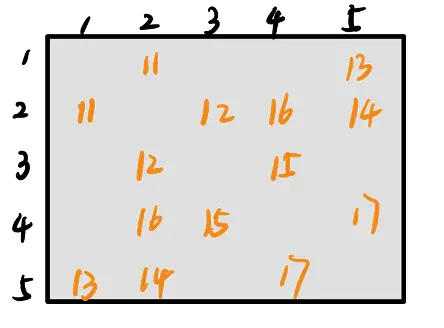 1 2 3 4 5
1 11 13
2 11 12 16 14
3 12 15
4 16 15 17
5 13 14 17